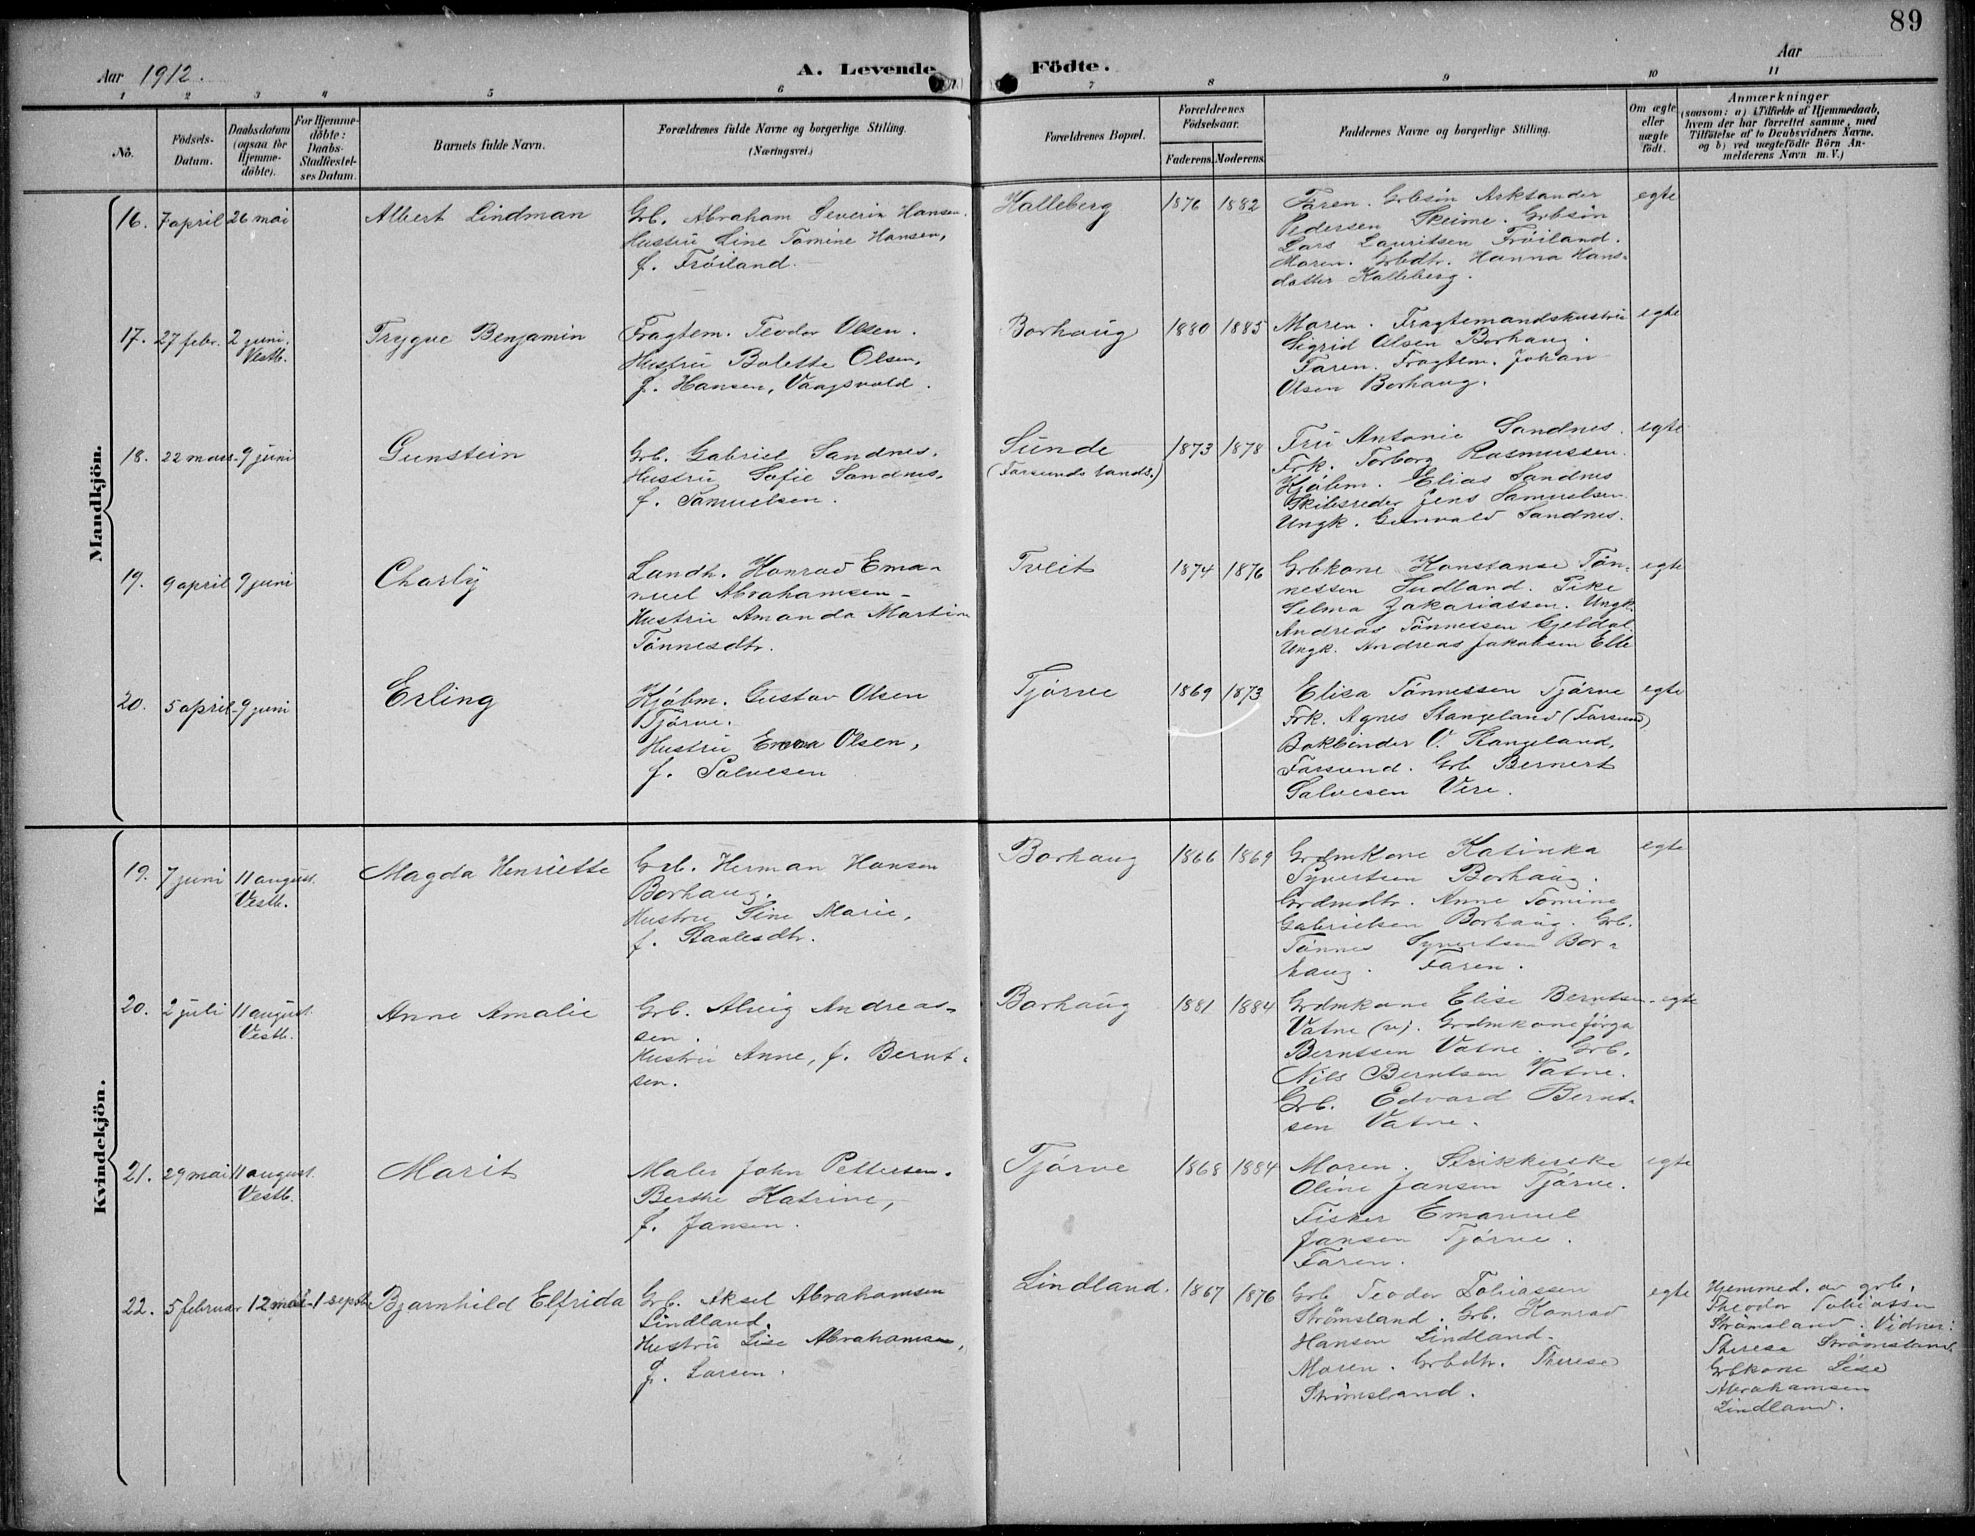 89
Aar 1912.
A. Levende Födte.
Aar
1 2 3 4 5 6 7 8 9 10 11
No.
Födsels-
Datum.
Daabsdatum
(ogsaa for
Hjemme-
döbte).
For Hjemme-
döbte:
Daabs-
Stadfæstel-
ses Datum.
Barnets fulde Navn.
Forældrenes fulde Navne og borgerlige Stilling.
(Næringsvei.)
Forældrenes Bopæl.
Forældrenes
Födselsaar.
Faderens. Moderens.
Faddernes Navne og borgerlige Stilling.
Om ægte
eller
uægte
födt.
Anmærkninger
(saasom: a) i Tilfælde af Hjemmedaab,
hvem der har forrettet samme, med
Tilföielse af to Daabsvidners Navne.
og b) ved uægtefödte Börn An-
melderens Navn m. V.)
Mandkjön.
16. 7 april 26 mai
Albert Lindman
Grb. Abraham Severin Hansen.
Hustru Line Tomine Hansen,
f. Fröiland.
Kalleberg
1876 1882
Faren. Grbsön Aleksander
Pedersen Skeime. Grbsön
Lars Lauritsen Fröiland.
Moren. Grbdtr. Hanna Hans-
datter Kalleberg.
egte
17. 27 febr. 2 juni.
Vestb.
Trygve Benjamin
Fragtem. Teodor Olsen.
Hustru Bolette Olsen,
f. Hansen, Vaagsvold.
Borhaug
1880 1885
Moren. Fragtemandshustru
Sigrid Olsen Borhaug.
Faren. Fragtem. Johan
Olsen Borhaug.
egte
18. 22 mars 9 juni
Gunstein
Grb. Gabriel Sandnes.
Hustru Sofie Sandnes,
f. Samuelsen.
Sunde
(Farsunds lands.)
1873 1878
Fru Antonie Sandnes.
Frk. Torborg Rasmussen.
Kjöbm. Elias Sandnes
Skibsreder Jens Samuelsen
Ungk. Gunvald Sandnes.
egte
19. 9 april 9 juni
Charly
Landh. Konrad Ema-
nuel Abrahamsen -
Hustru Amanda Martine
Tönnesdtr.
Tveit
1874 1876
Grbkone Konstanse Tön-
nessen Sudland. Pike
Selma Zakariassen. Ungk.
Andreas Tönnessen Gjeldal.
Ungk. Andreas Jakobsen Elle
egte
20. 5 april 9 juni
Erling
Kjöbm. Gustav Olsen
Tjörve.
Hustru Emma Olsen,
f. Salvesen
Tjörve
1869 1873
Elisa Tönnessen Tjörve
Frk. Agnes Stangeland (Farsund)
Bokbinder O. Stangeland,
Farsund. Grb Bernert
Salvesen Vere.
egte
Kvindekjön.
19. 7 juni 11 august.
Vestb.
Magda Henriette
Grb. Herman Hansen
Borhaug.
Hustru Sine Marie,
f. Staalesdtr.
Borhaug
1866 1869
Grdmkone Katinka
Syvertsen Borhaug.
Grdmdtr. Anne Tomine
Gabrielsen Borhaug. Grb.
Tönnes Syvertsen Bor-
haug. Faren.
egte
20. 2 juli 11 august.
Vestb.
Anne Amalie
Grb. Alvig Andreas-
sen.
Hustru Anne, f. Bernt-
sen.
Borhaug
1881 1884
Grdmkone Elise Berntsen
Vatne (v). Grdmkone Jörga
Berntsen Vatne. Grb.
Nils Berntsen Vatne.
Grb. Edvard Bernt-
sen Vatne.
egte
21. 29 mai 11 august.
Vestb.
Marit
Maler John Pettersen.
Berthe Katrine,
f. Jansen.
Tjörve
1868 1884
Moren. Strikkerske
Oline Jansen Tjörve.
Fisker Emanuel
Jansen Tjörve.
Faren.
egte
22. 5 februar 12 mai 1 septbr.
Bjarnhild Elfrida
Grb. Aksel Abrahamsen
Lindland.
Hustru Lise Abrahamsen,
f. Larsen.
Lindland.
1867 1876
Grb. Teodor Tobiassen
Strömsland. Grb. Konrad
Hansen Lindland.
Moren. Grbdtr. Therese
Strömsland.
egte
Hjemmed. av grb.
Theodor Tobiassen
Strömsland. Vidner:
Therese Strömsland
Grbkone Lise
Abrahamsen
Lindland.